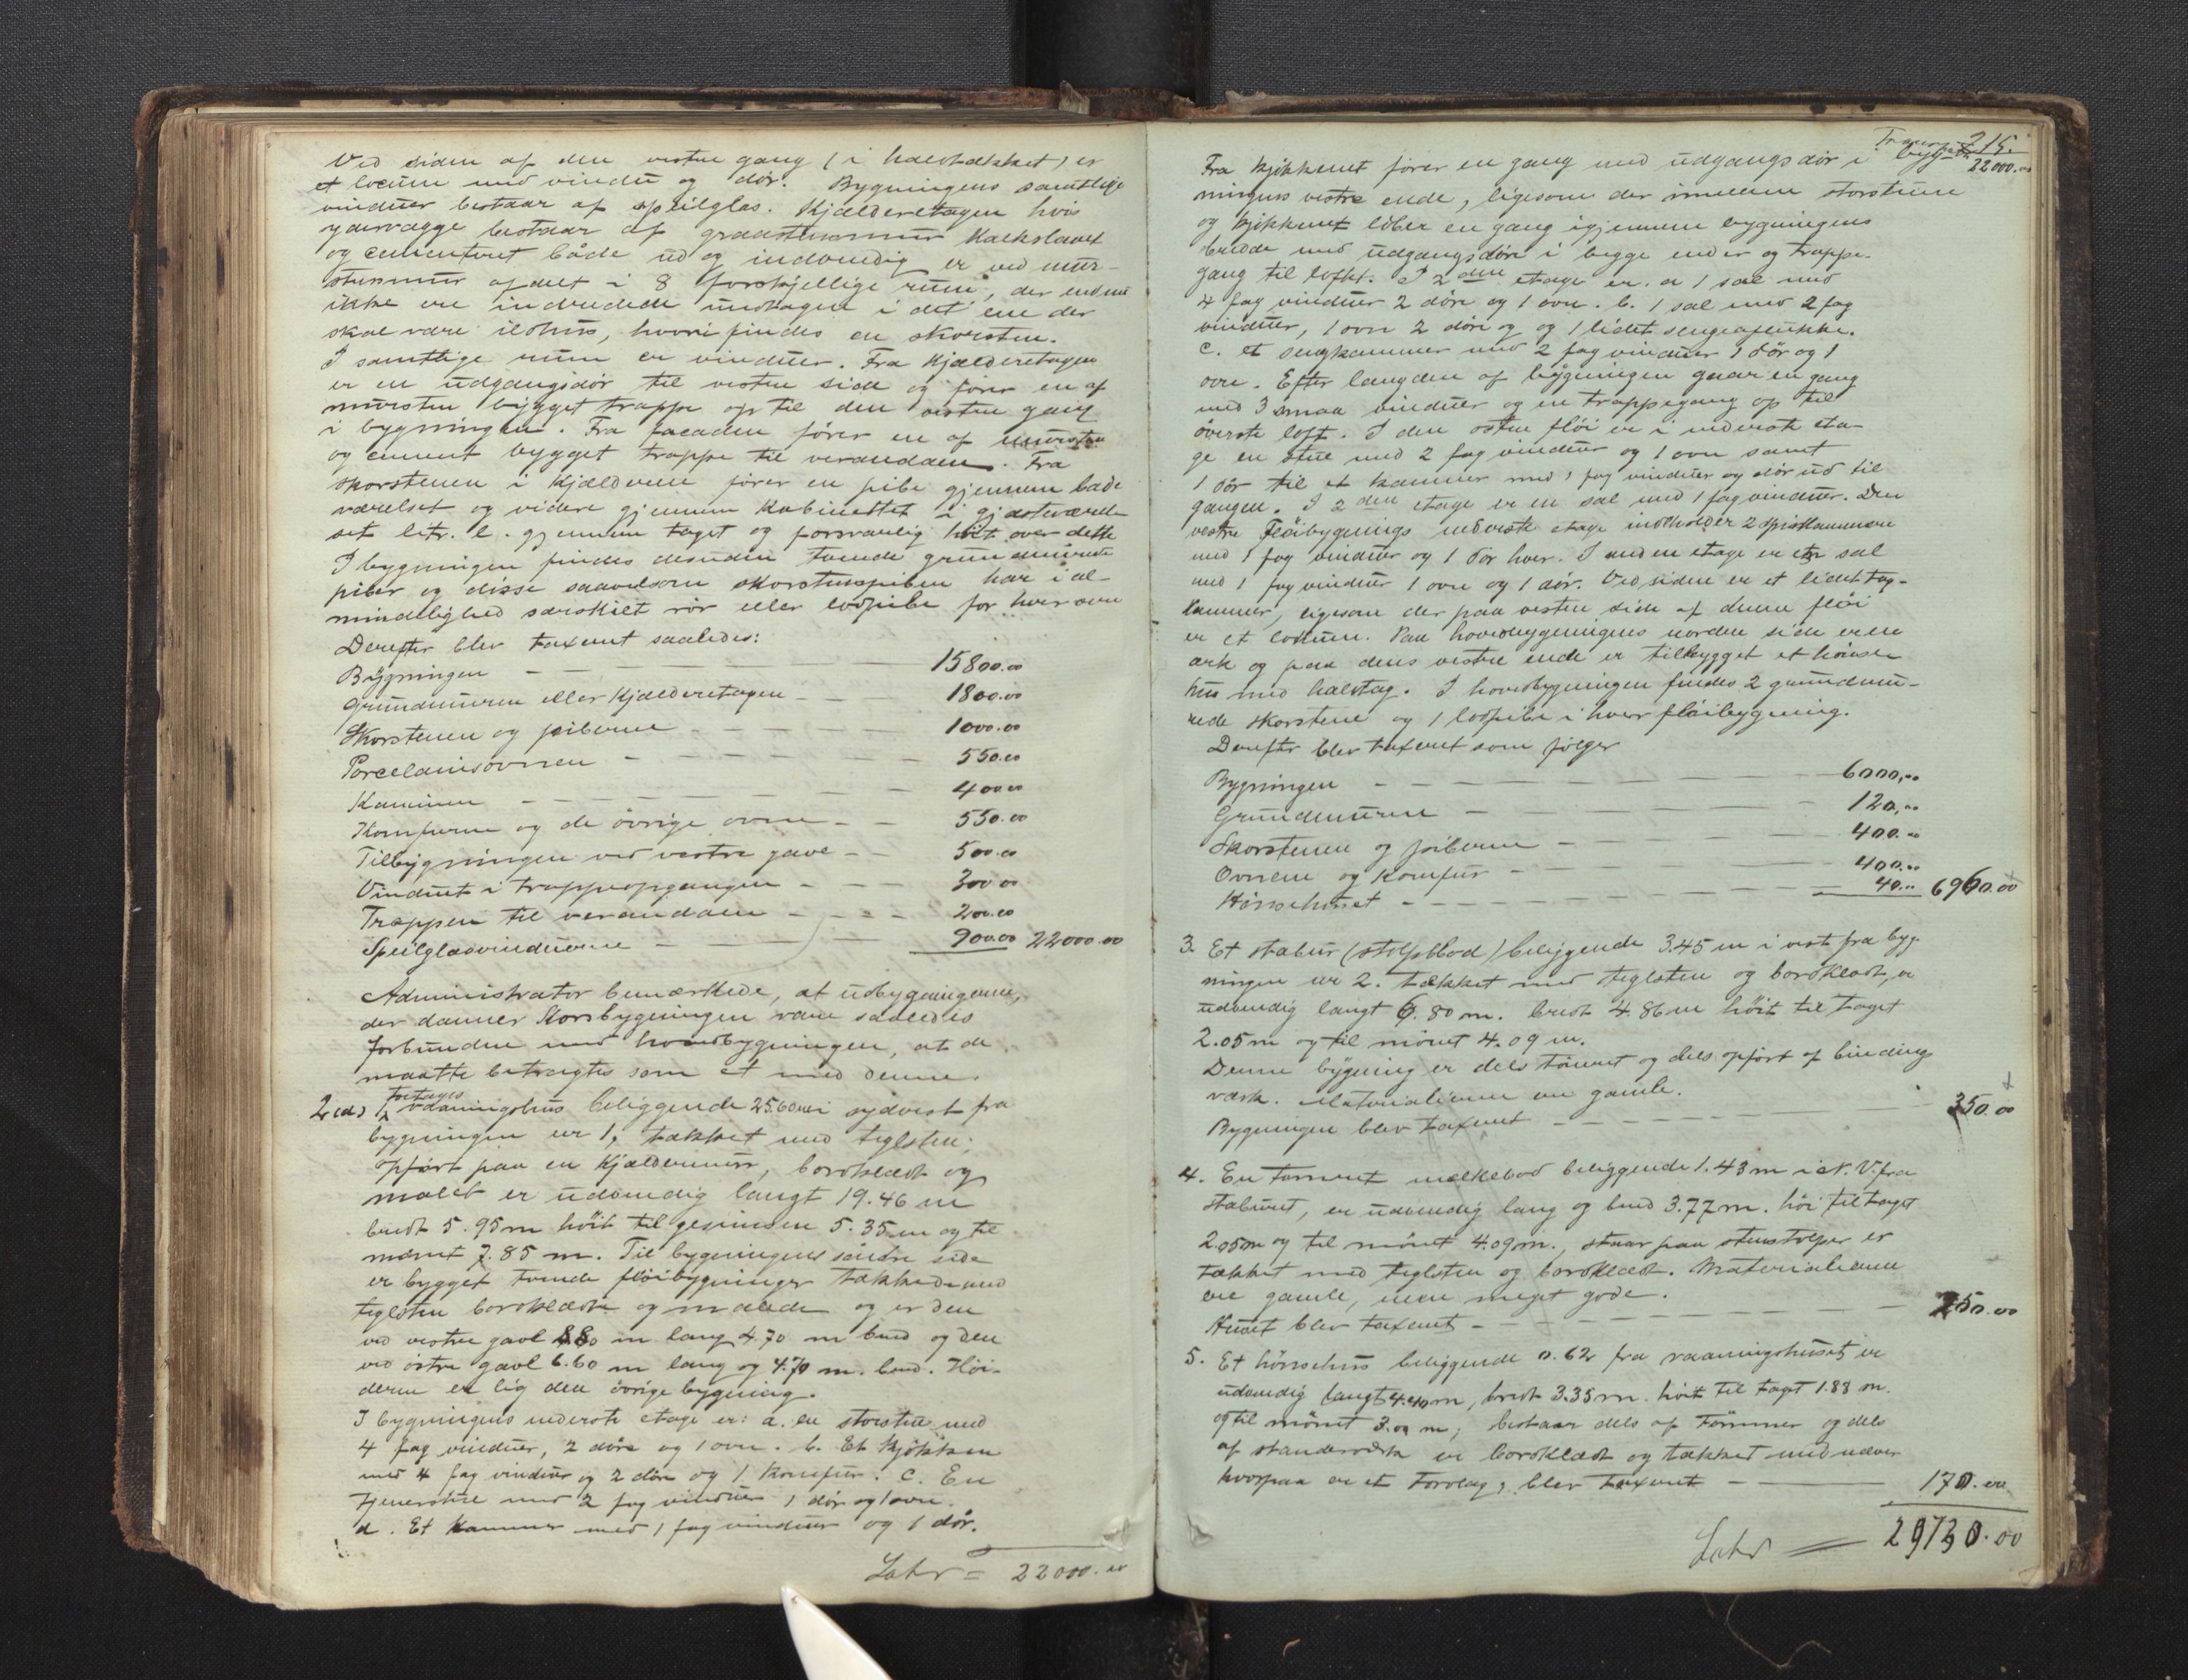 Ved siden af den vestre gang (i halvtækket) er
et locum med vindu og dør. Bygningens samtlige
vinduer bestaar af speilglas. Kjælderetagen hvis
ydervægge bestaar af graastensmur kalkslaaet
og cementeret både ud og indvendig er ved mur-
stensmur afdelt i 8 forskjellige rum, der endnu
ikke ere indredede undtagen i det ene der
skal være ildhus, hvori findes en skorsten.
I samtlige rum er vinduer. Fra Kjælderetagen
er en udgangsdør til vestre side og fører en af
mursten bygget trappe op til den vestre gang
i bygningen. Fra facaden fører en af mursten
og cement bygget trappe til verandaen. Fra
skorstenen i Kjælderen fører en pibe gjennem bade
værelset og videre gjennem Kabinettet i gjæsteværel-
set litr. l. gjennem taget og forsvarlig høit over dette
I bygningen findes desuden tvende grundmurede
piber og disse saavelsom skorstenspiben har i al-
mindelighed særskilt rør eller lodpibe for hver ovn
Derefter blev taxeret saaledes:
Bygningen — 15800.00
Grundmuren eller Kjælderetagen — 1800.00
Skorstenen og piberne — 1000.00
Porcelainsovnen — 550.00
Kaminen — 400.00
Komfurene og de øvrige ovne — 550.00
Tilbygningen ved vestre gavl — 500.00
Vinduet i trappeopgangen — 300.00
Trappen til verandaen — 200.00
Speilglasvinduerne — 900.00 22000.00
Administrator bemærkede, at udbygningerne,
der danner Korsbygningen vare saaledes
forbundne med hovedbygningen, at de
maatte betragtes som et med denne.
2(a) Vaaningshus beliggende 25.60 m i sydvest fra
bygningen nr 1, tækket med teglsten,
opført paa en Kjældermur, bordklædt og
malet er udvendig langt 19.46 m
bredt 5.95 m høit til gesimsen 5.35 m og til
mønet 7.85 m. Til bygningens søndre side
er bygget tvende fløibygninger tækkede med
teglsten bordklædte og malede og er den
ved vestre gavl m lang 4.70 m bred og den
ved østre gavl 6.60 m lang og 4.70 m. bred. Høi-
derne er lig den øvrige bygning.
I bygningens nederste etage er: a. en storstue med
4 fag vinduer, 2 døre og 1 ovn. b. Et kjøkken
med 4 fag vinduer og 2 døre og 1 Komfur. c. En
tjenerstue med 2 fag vinduer 1 dør og 1 ovn.
d. Et Kammer med 1 fag vinduer og 1 dør.
Lateris = 22000.00
215.
22000.00
Fra kjøkkenet fører en gang med udgangsdør i byg-
ningens vestre ende, ligesom der imellem storstuen
og kjøkkenet løber en gang igjennem bygningens
bredde med udgangsdøre i begge ender og trappe-
gang til loftet. I 2den etage er. a 1 sal med
4 fag vinduer 2 døre og 1 ovn. b. 1 sal med 2 fag
vinduer, 1 ovn 2 døre og og 1 lidet sengeaflukke.
c. et sengkammer med 2 fag vinduer 1 dør og 1
ovn. Efter længden af bygningen gaar en gang
med 3 smaa vinduer og en trappegang op til
øverste loft. I den østre fløi er i nederste eta-
ge en stue med 2 fag vinduer og 1 ovn samt
1 dør til et kammer med 1 fag vinduer og dør ud til
gangen. I 2den etage er en sal med 1 fag vinduer. Den
vestre Fløibygnings nederste etage indeholder 2 spiskammere
med 1 fag vinduer og 1 dør hver. I anden etage er en sal
med 1 fag vinduer 1 ovn og 1 dør. Ved siden er et lidet tag-
kammer, ligesom der paa vestre side af denne fløi
er et locum. Paa hovedbygningens nordre side er en
ark og paa dens vestre ende er tilbygget et hønse-
hus med halvtag. I hovedbygningen findes 2 grundmu-
rede skorstene og 1 lodpibe i hver fløibygning.
Derefter blev taxeret som følger
Bygningen — 6000,00
Grundmuren — 120,00
Skorstenen og piberne — 400.00
Ovnene og Komfur — 400.00
Hønsehuset — 40.00 6960.00
3. Et stabur (stolpebod) beliggende 3.45 m i vest fra byg-
ningen nr 2. tækket med teglsten og bordklædt, er
udvendig langt 6.80 m. bredt 4.86 m høit til taget
2.05 m og til mønet 4.09 m.
Denne bygning er dels tømret og dels opført af bindings
værk. Materialierne ere gamle.
Bygningen blev taxeret — 350.00
4. En tømret melkebod beliggende 1.43 m i N. V. fra
staburet, er udvendig lang og bred 3.77 m. høi til taget
2.05 m og til mønet 4.09 m., staar paa stenstolper er
tækket med teglsten og bordklædt. Materialierne
ere gamle, men meget gode.
Huset blev taxeret — 250.00
5. Et hønsehus beliggende 0.62 fra vaaningshuset, er
udvendig langt 4.40 m, bredt 3.35 m. høit til taget 1.88 m.
og til mønet 3.00 m; bestaar dels af Tømmer og dels
af standerværk er bordklædt og tækket med næver
hvorpaa er et Torvtag, blev taxeret — 170.00
Lateris = 29730.00